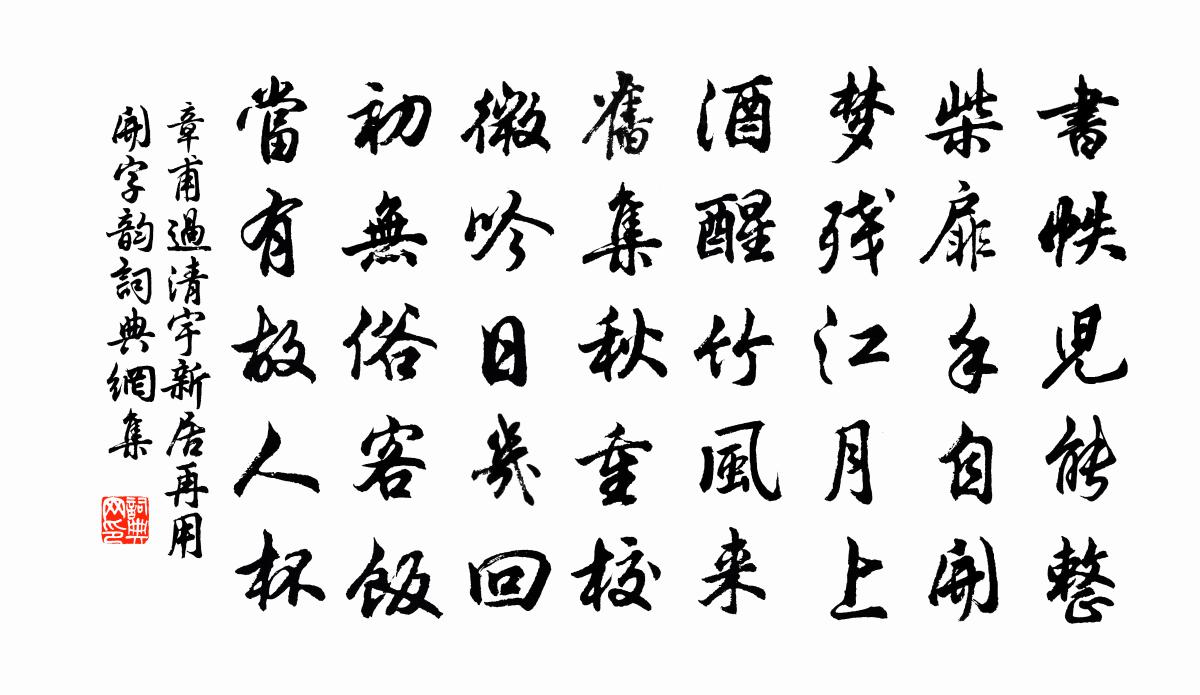 書帙児能整
柴扉手自開
梦残江月上
酒醒竹風来
舊集秋重校
微吟日幾回
初無俗客飯
當有故人杯
章甫過清宇新居再用
開字韵詞典網集
詞典網印